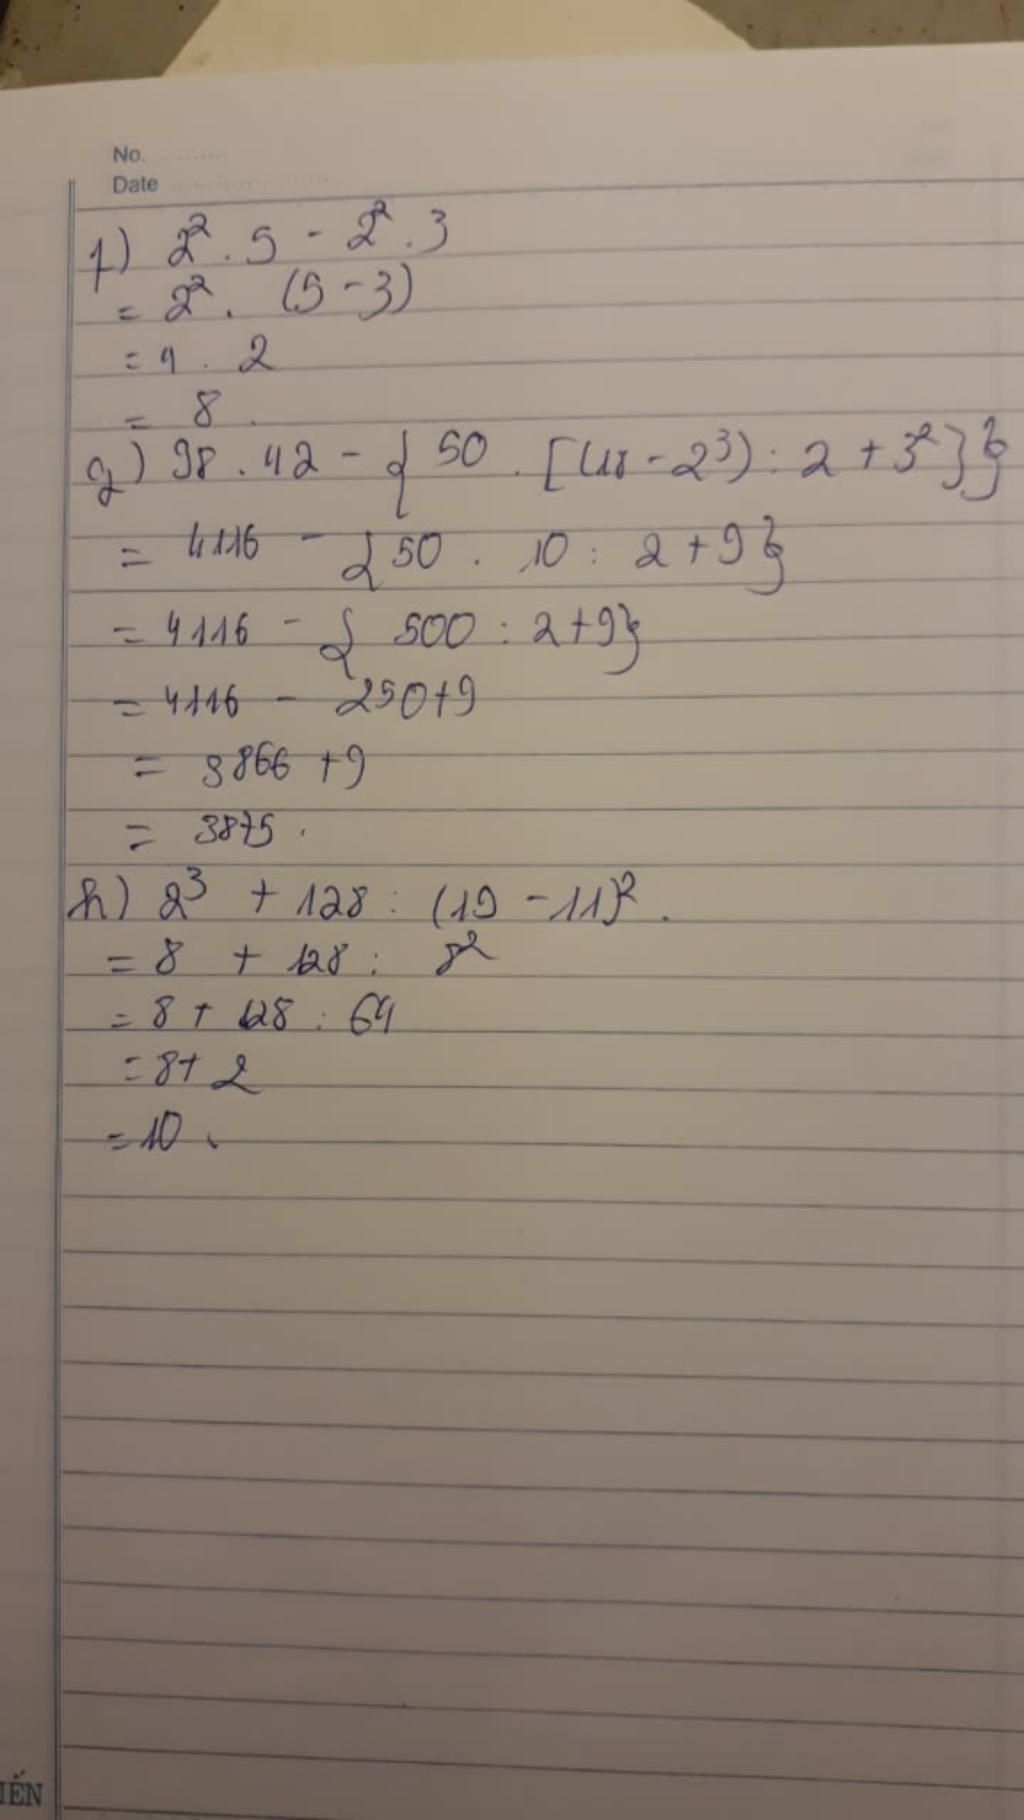 No.
Date
f) 2² . 5 - 2² . 3
= 2² . (5 - 3)
= 4 . 2
= 8 .
g) 98 . 42 - { 50 . [(18 - 2³) : 2 + 3²]}
= 4116 - {50 . 10 : 2 + 9}
= 4116 - { 500 : 2 + 9}
= 4116 - 250 + 9
= 3866 + 9
= 3875 .
h) 2³ + 128 : (19 - 11)² .
= 8 + 128 : 8²
= 8 + 128 : 64
= 8 + 2
= 10 .
IẾN